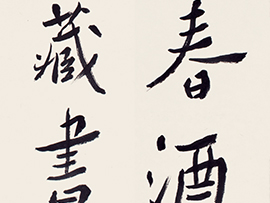 春酒
藏書